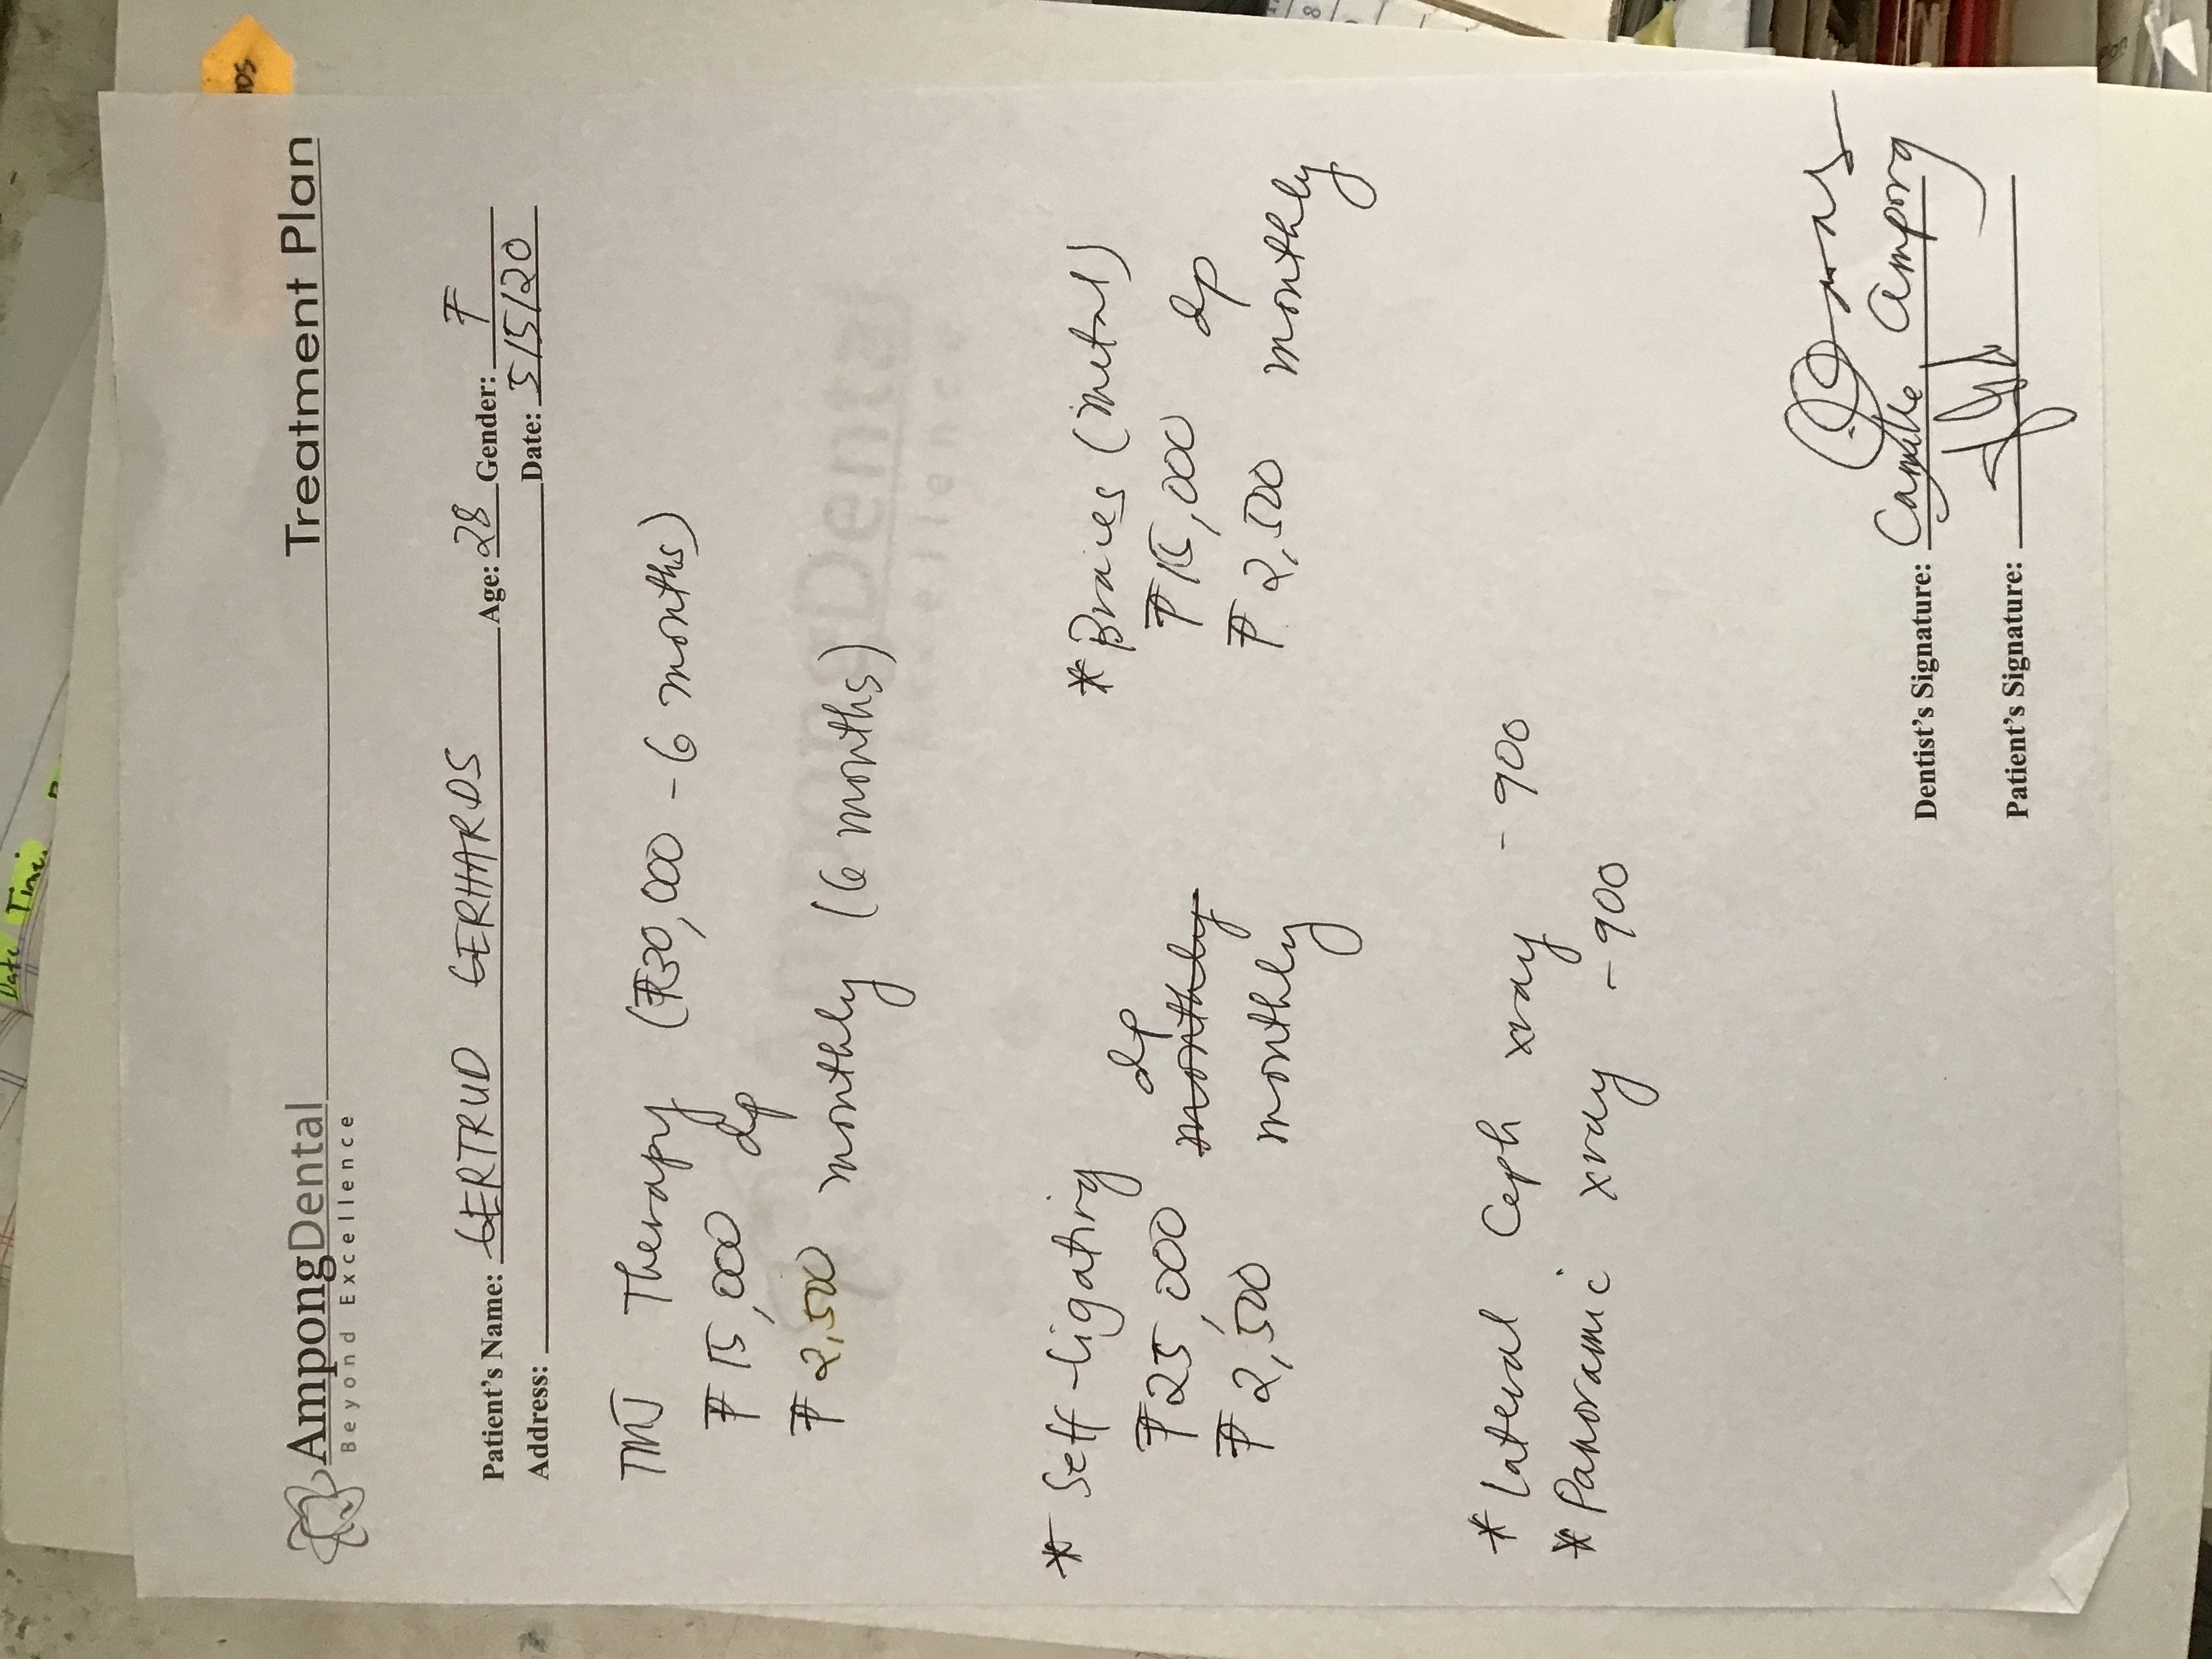 AmpongDental Treatment Plan
Beyond Excellence
Patient's Name: GERTRUD GERHARDS Age: 28 Gender: F
Address: Date: 5/15/20
TMJ Therapy (₱30,000 - 6 months)
₱15,000 dp
₱2,500 monthly (6 months)
* Self-ligating
₱25,000 dp
monthly
₱2,500 monthly
* Braces (metal)
₱15,000 dp
₱2,500 monthly
* Lateral Ceph xray - 900
* Panoramic xray - 900
Dentist's Signature: Camille Ampong
Patient's Signature:
Date Time